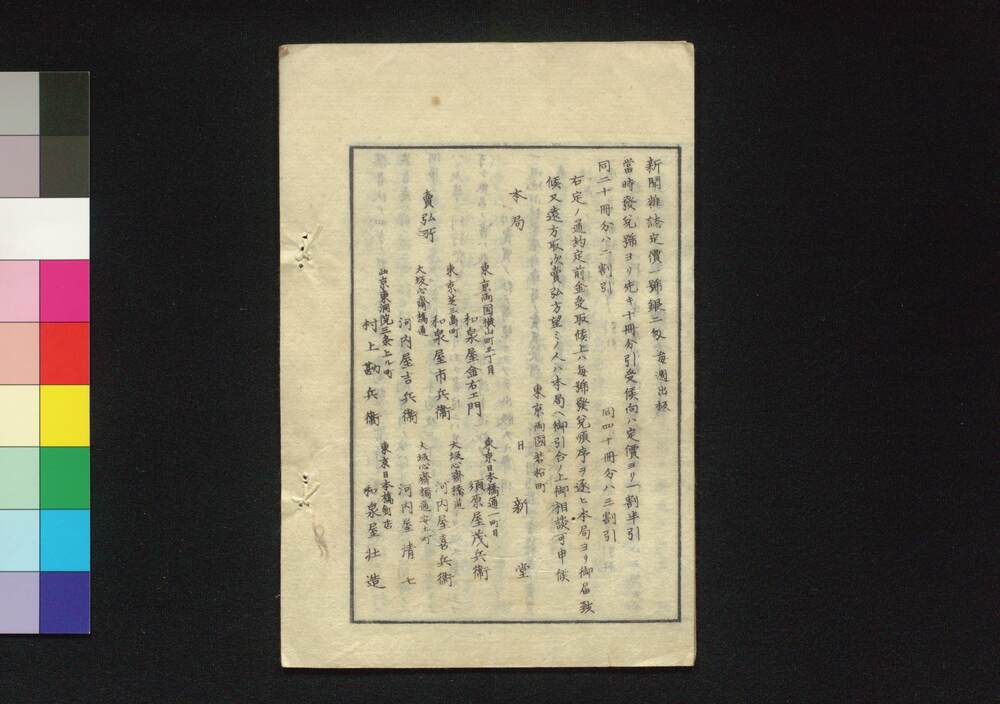 新聞雜誌定價一號銀二匁 毎週出版
當時發兌號ヨリ先キ十冊分引受候向ハ定價ヨリ一割半引
同二十冊分ハ二割引 同四十冊分ハ三割引
右定ノ通約定前金受取候上ハ毎號發兌順序ヲ逐ヒ本局ヨリ御届致
候又遠方取次賣弘方望ミノ人ハ本局ヘ御引合ノ上御相談可申候
東京両國若松町
本局 日新堂
賣弘所
東京両国横山町三丁目
和泉屋金右エ門
東京日本橋通一町目
須原屋茂兵衛
東京芝三島町
和泉屋市兵衛
大坂心齋橋通
河内屋喜兵衛
大坂心齋橋通
河内屋吉兵衛
大坂心齋橋通安土町
河内屋清七
西京東洞院三条上ル町
村上勘兵衛
東京日本橋釘店
和泉屋壮造